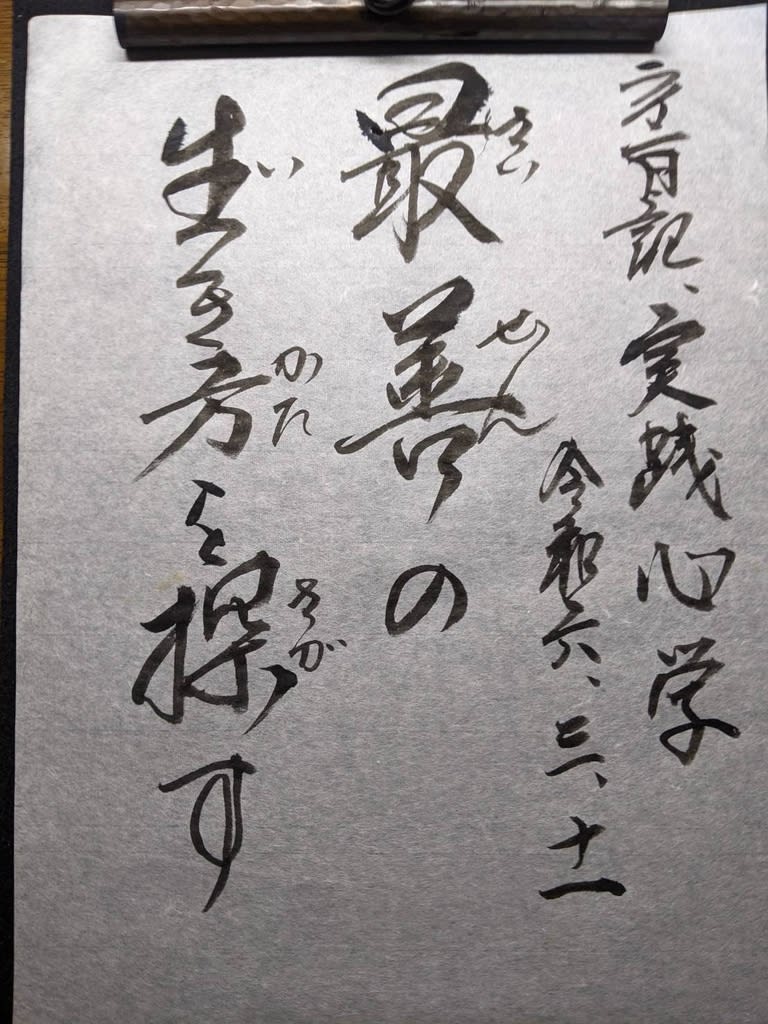 記、実践心学
令和六、三、十一
さいせん
最善の
いかたさが
生き方を探す